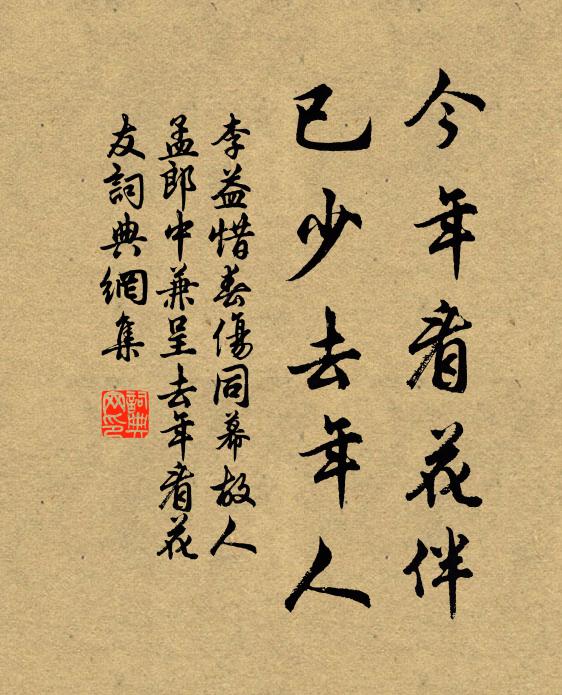 今年看花伴
已少去年人
李益惜春傷同幕故人
孟郎中兼呈去年看花
友詞典網集
詞典網印